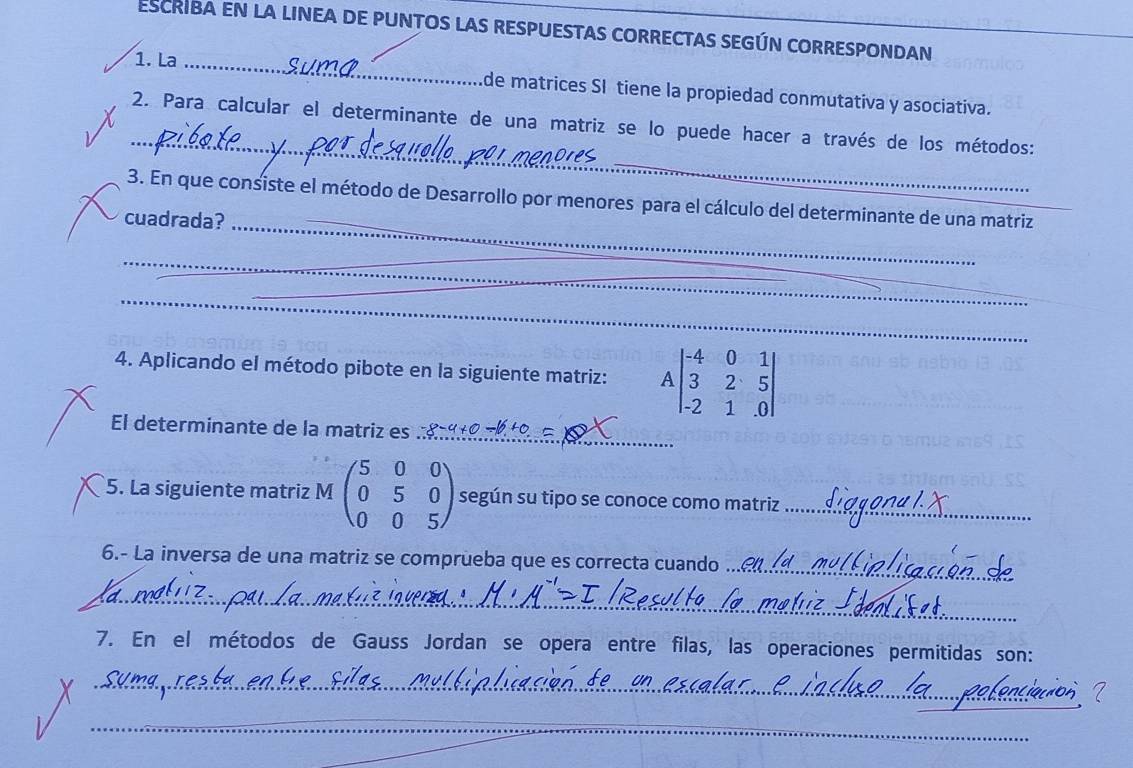 ESCRIBA EN LA LINEA DE PUNTOS LAS RESPUESTAS CORRECTAS SEGÚN CORRESPONDAN
1. La suma de matrices SI tiene la propiedad conmutativa y asociativa.
2. Para calcular el determinante de una matriz se lo puede hacer a través de los métodos:
pibote y por desarrollo por menores
3. En que consiste el método de Desarrollo por menores para el cálculo del determinante de una matriz
cuadrada?
4. Aplicando el método pibote en la siguiente matriz: A
-4 0 1
3 2 5
-2 1 .0
El determinante de la matriz es -8-4+0-16+0 =
5. La siguiente matriz M
5 0 0
0 5 0
0 0 5
según su tipo se conoce como matriz diagonal.
6.- La inversa de una matriz se comprueba que es correcta cuando en la multiplicación de
la matriz par la matriz inversa. M . M⁻¹ = I / Resulta la matriz
7. En el métodos de Gauss Jordan se opera entre filas, las operaciones permitidas son:
suma, resta entre filas multiplicación de un escalar, e incluso la potenciacion ?